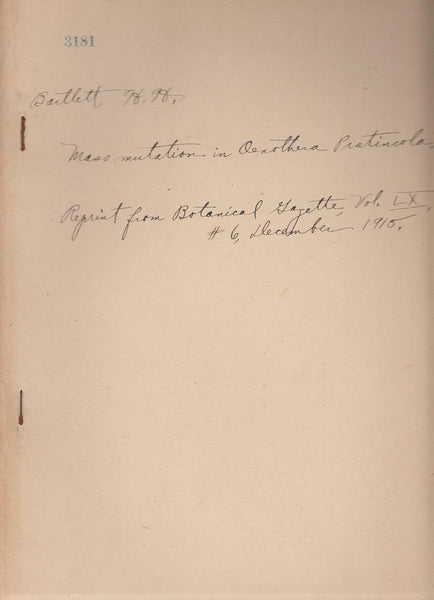 3181
Bartlett, H. H.
Mass mutation in Oenothera Pratincola.
Reprint from Botanical Gazette, Vol. LX,
# 6, December 1915.